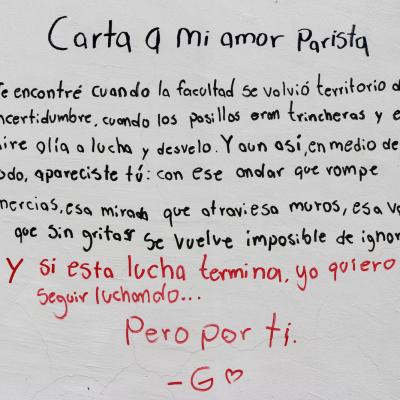 Carta a mi amor Parista
Te encontré cuando la facultad se volvió territorio d
ncertidumbre, cuando los pasillos eran trincheras y e
ire olía a lucha y desvelo. Y aun así, en medio de
odo, apareciste tú: con ese andar que rompe
nercias, esa mirada que atraviesa muros, esa vo
que sin gritar se vuelve imposible de ignor
Y si esta lucha termina, yo quiero
seguir luchando...
Pero por ti.
- G ♡